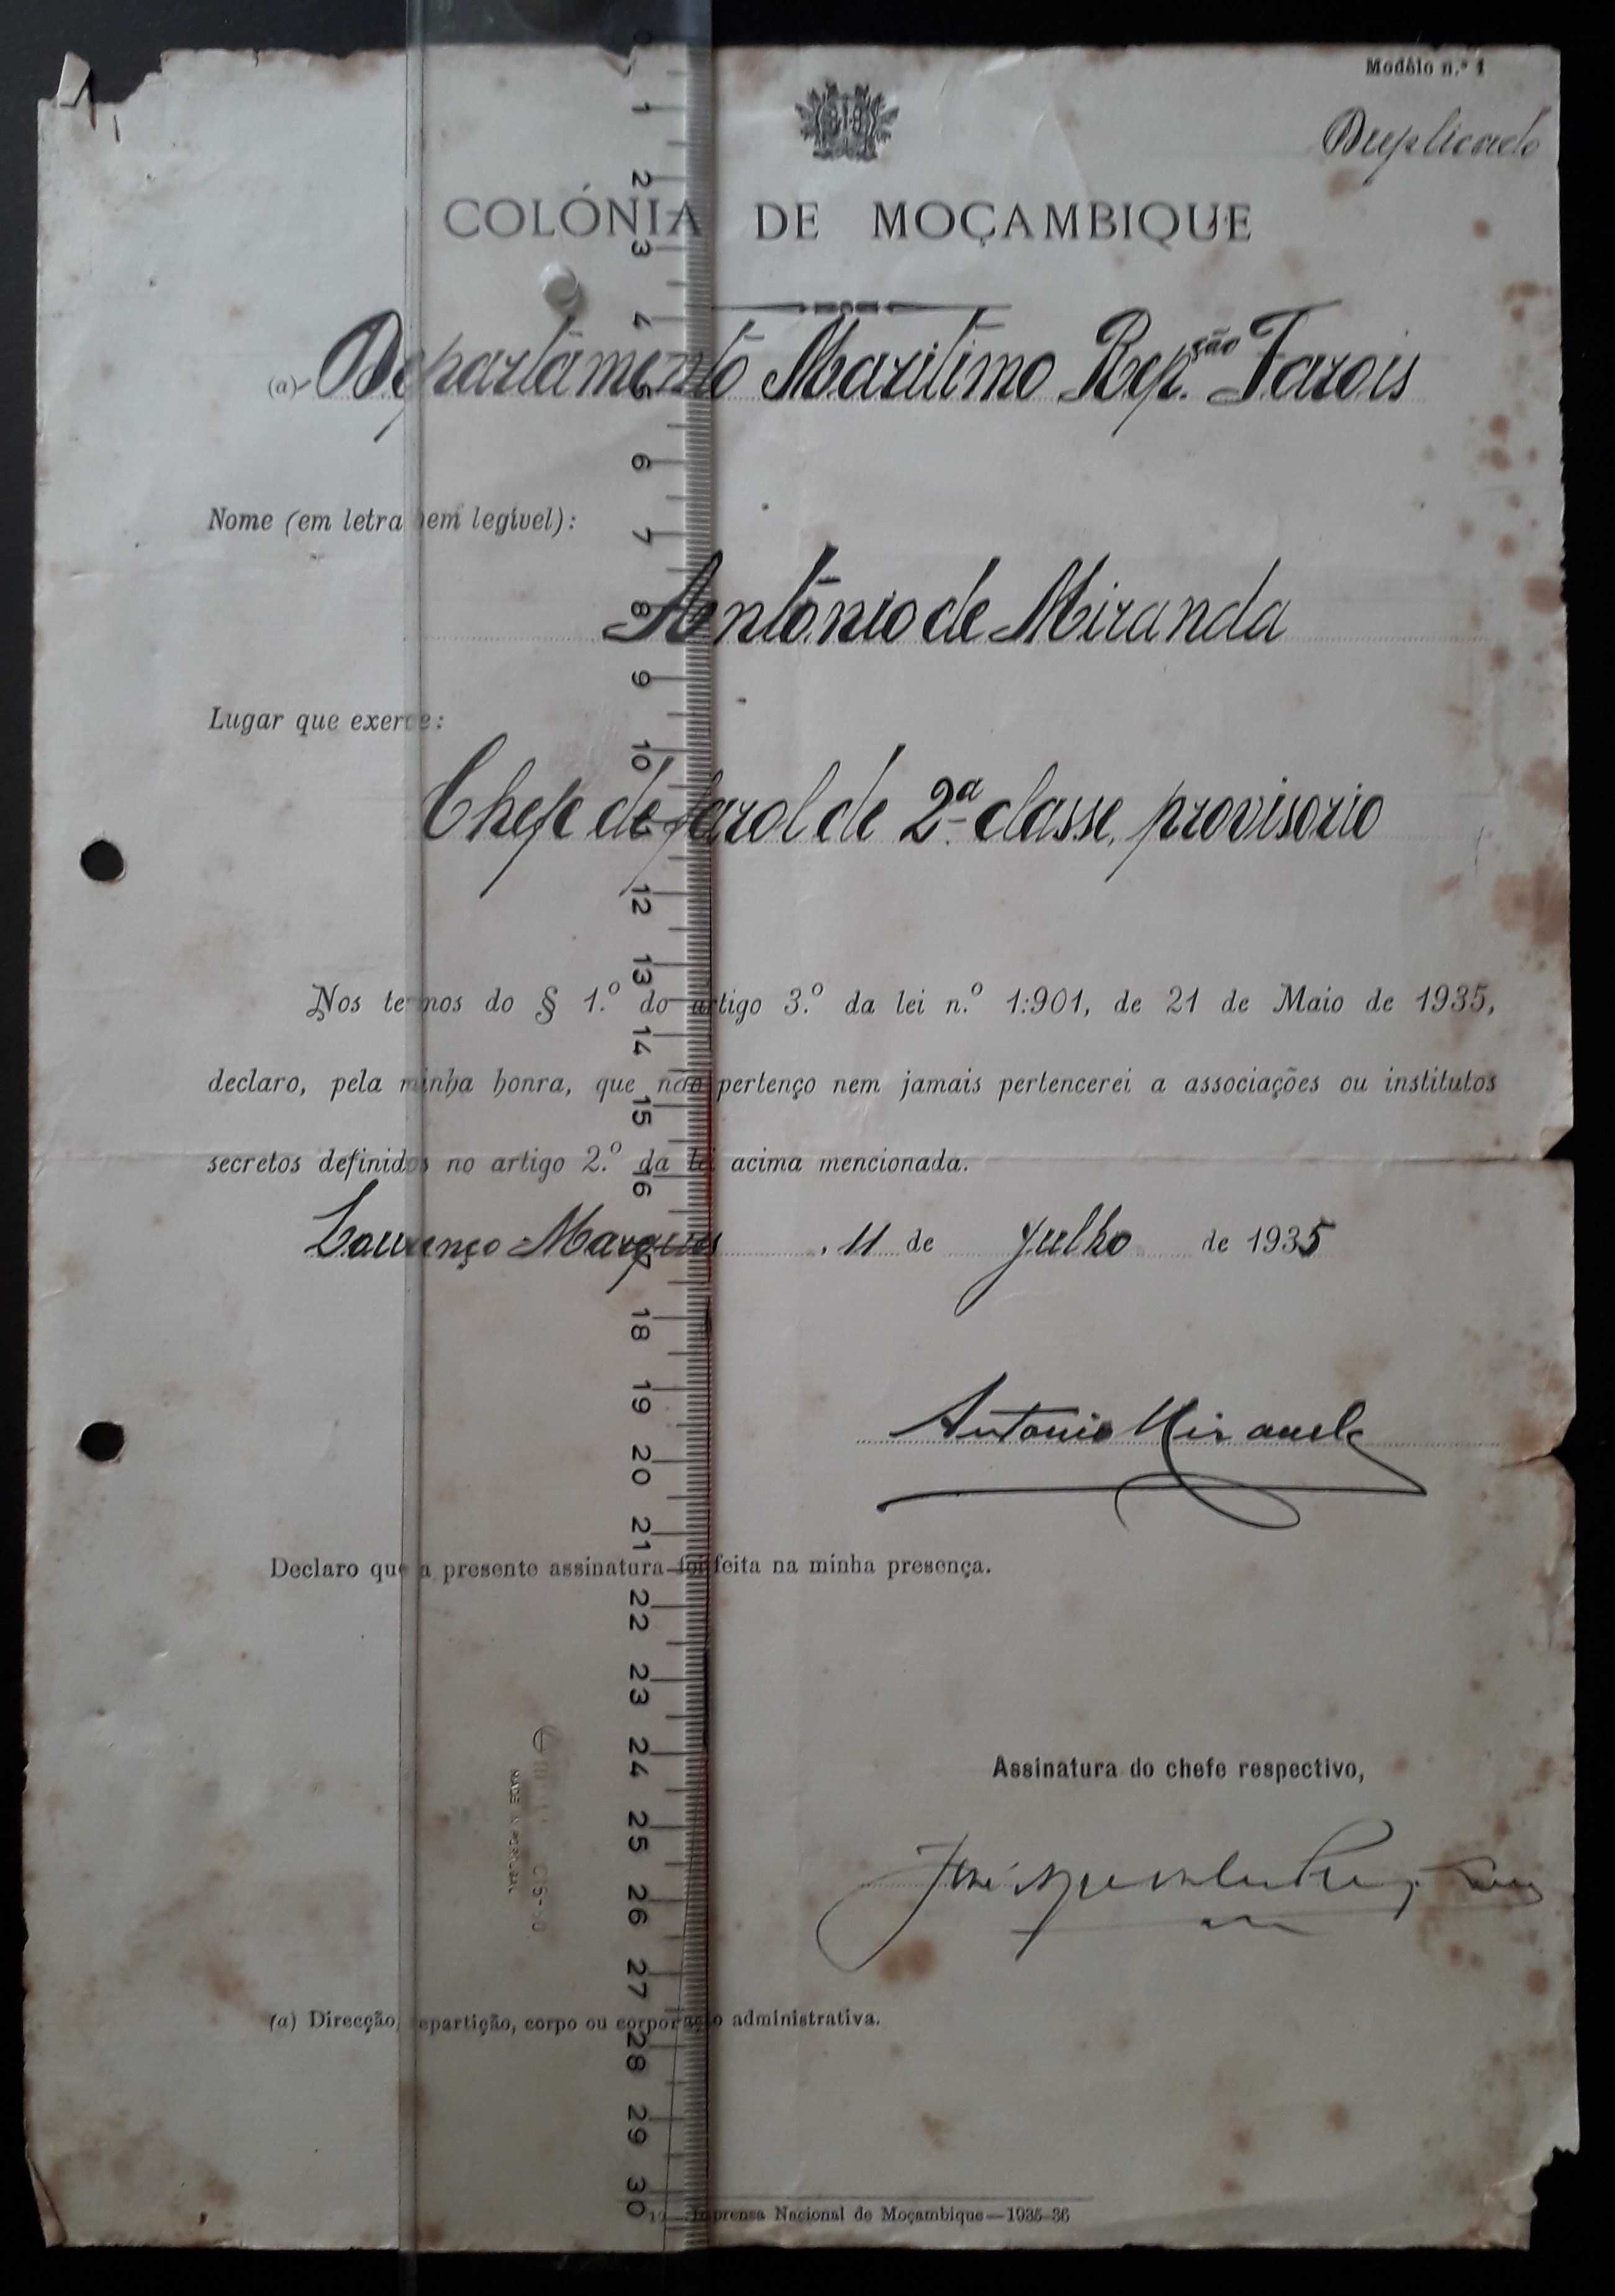 Modêlo n.º 1
Duplicado
COLÓNIA DE MOÇAMBIQUE
(a) Departamento Maritimo Rep.ção Farois
Nome (em letra bem legível):
António de Miranda
Lugar que exerce:
Chefe de farol de 2.ª classe, provisorio
Nos termos do § 1.º do artigo 3.º da lei n.º 1:901, de 21 de Maio de 1935,
declaro, pela minha honra, que não pertenço nem jamais pertencerei a associações ou institutos
secretos definidos no artigo 2.º da lei acima mencionada.
Lourenço Marques, 11 de Julho de 1935
Antonio Miranda
Declaro que a presente assinatura foi feita na minha presença.
Assinatura do chefe respectivo,
José
(a) Direcção, repartição, corpo ou corporação administrativa.
Imprensa Nacional de Moçambique—1935-36
0 1 2 3 4 5 6 7 8 9 10 11 12 13 14 15 16 17 18 19 20 21 22 23 24 25 26 27 28 29 30
MADE IN PORTUGAL